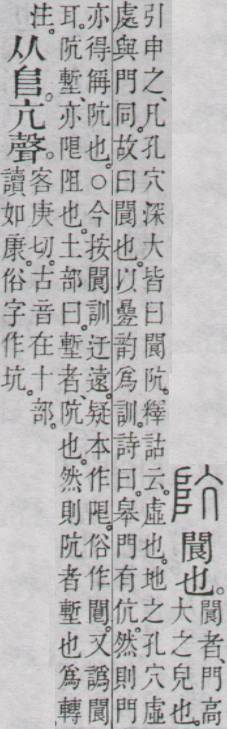 阬 閬也。
閬者、門高
大之皃也。
引申之、凡孔穴深大皆曰閬阬。釋詁云。虛也。地之孔穴虛
處與門同。故曰閬也。以疊韵爲訓。詩曰。皋門有伉。然則門
亦得稱阬也。○今按閬訓迂遠。疑本作阸。俗作。又譌閬
耳。阬塹、亦阸阻也。土部曰。塹者阬也。然則阬者塹也爲轉
注。
从𨸏亢聲。
客庚切。古音在十部。
讀如康。俗字作坑。